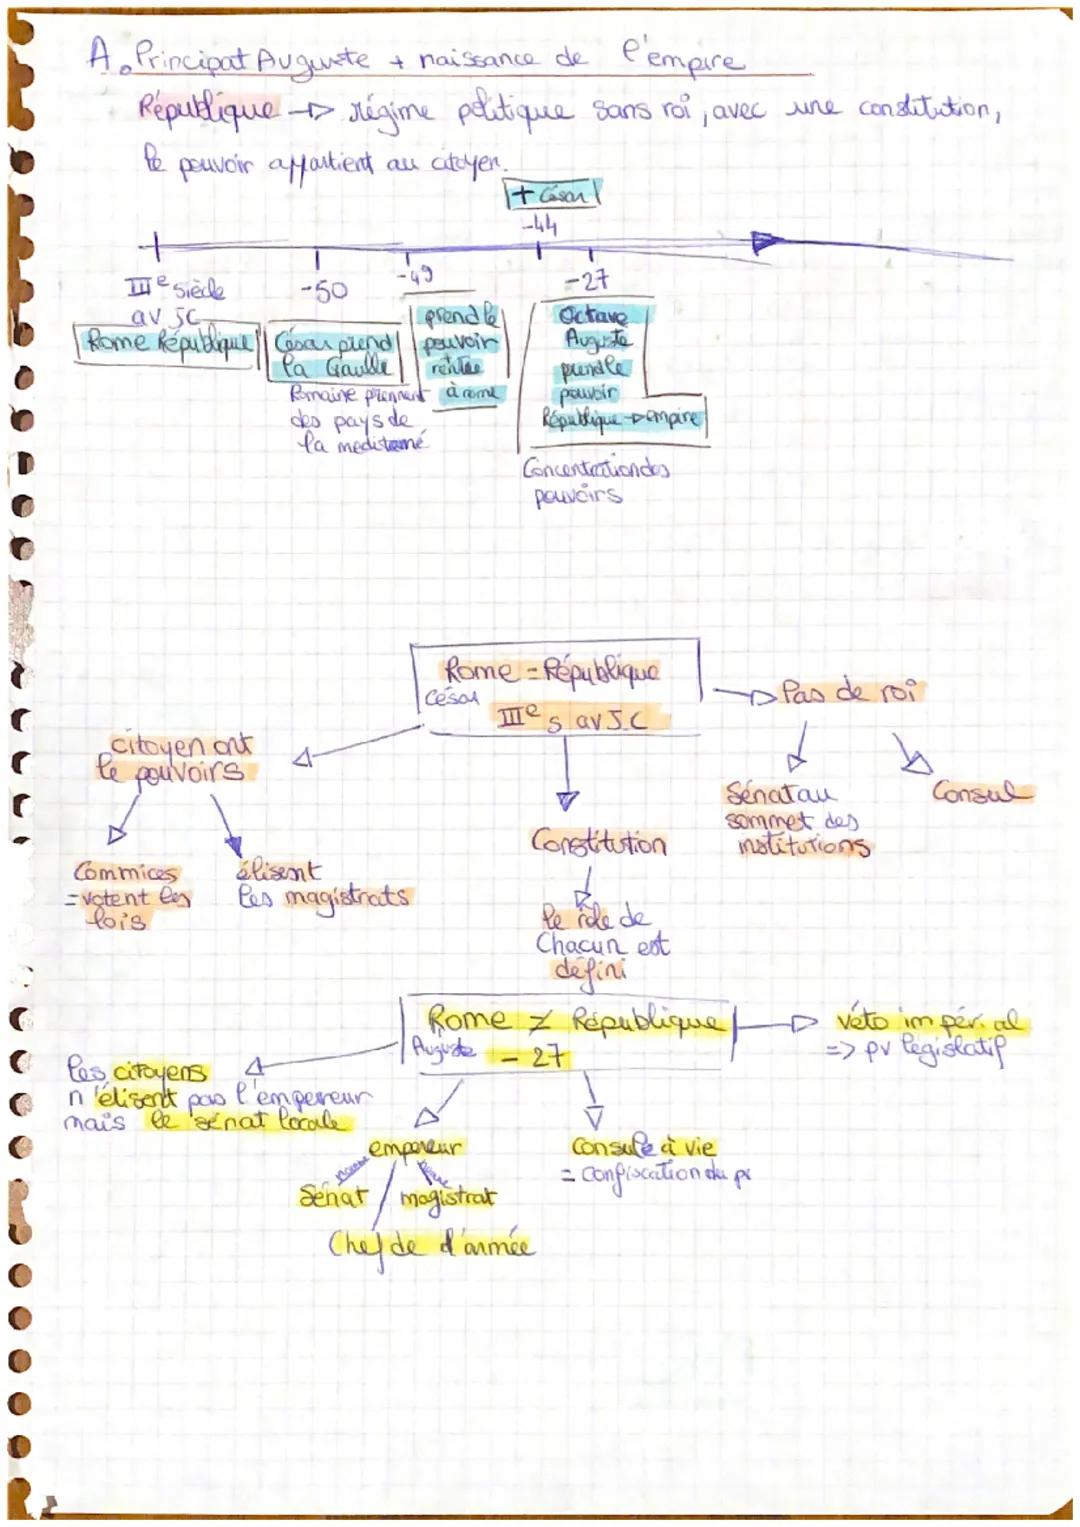 A. Principat Auguste + naissance de l'empire
République → régime politique sans roi, avec une constitution,
le pouvoir appartient au citoyen.
+ César
-44
IIIe siècle
av JC
Rome République
-50
César prend
la Gaulle
Romaine prennent
des pays de
la mediterané
-49
prend le
pouvoir
rentre
à rome
-27
Octave
Auguste
prend le
pouvoir
République → empire
Concentration des
pouvoirs
Rome = République
César
IIIe s av J.C
→ Pas de roi
Sénat au
sommet des
institutions
Consul
citoyen ont
le pouvoirs
Commices
= votent les
lois
élisent
les magistrats
Constitution
le role de
Chacun est
défini
Rome ≠ République
Auguste
- 27
véto impérial
=> pv législatif
les citoyens
n'élisent pas l'empereur
mais le sénat locale
empereur
nomme
Sénat
magistrat
Chef de d'armée
Consule à vie
= confiscation du pv